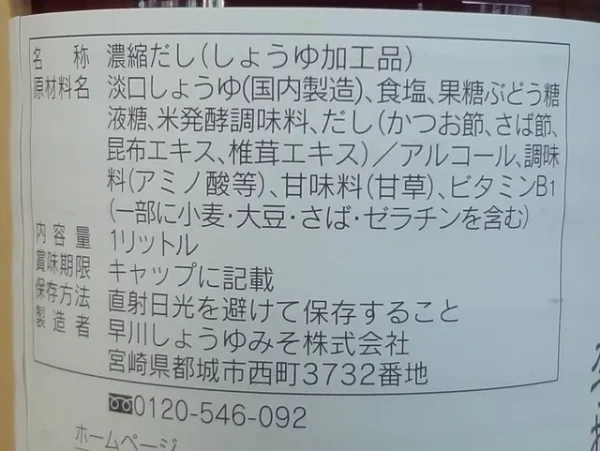 名称 濃縮だし(しょうゆ加工品)
原材料名 淡口しょうゆ(国内製造)、食塩、果糖ぶどう糖
液糖、米発酵調味料、だし(かつお節、さば節、
昆布エキス、椎茸エキス)/アルコール、調味
料(アミノ酸等)、甘味料(甘草)、ビタミンB1
(一部に小麦・大豆・さば・ゼラチンを含む)
内容量 1リットル
賞味期限 キャップに記載
保存方法 直射日光を避けて保存すること
製造者 早川しょうゆみそ株式会社
宮崎県都城市西町3732番地
0120-546-092
ホームページ